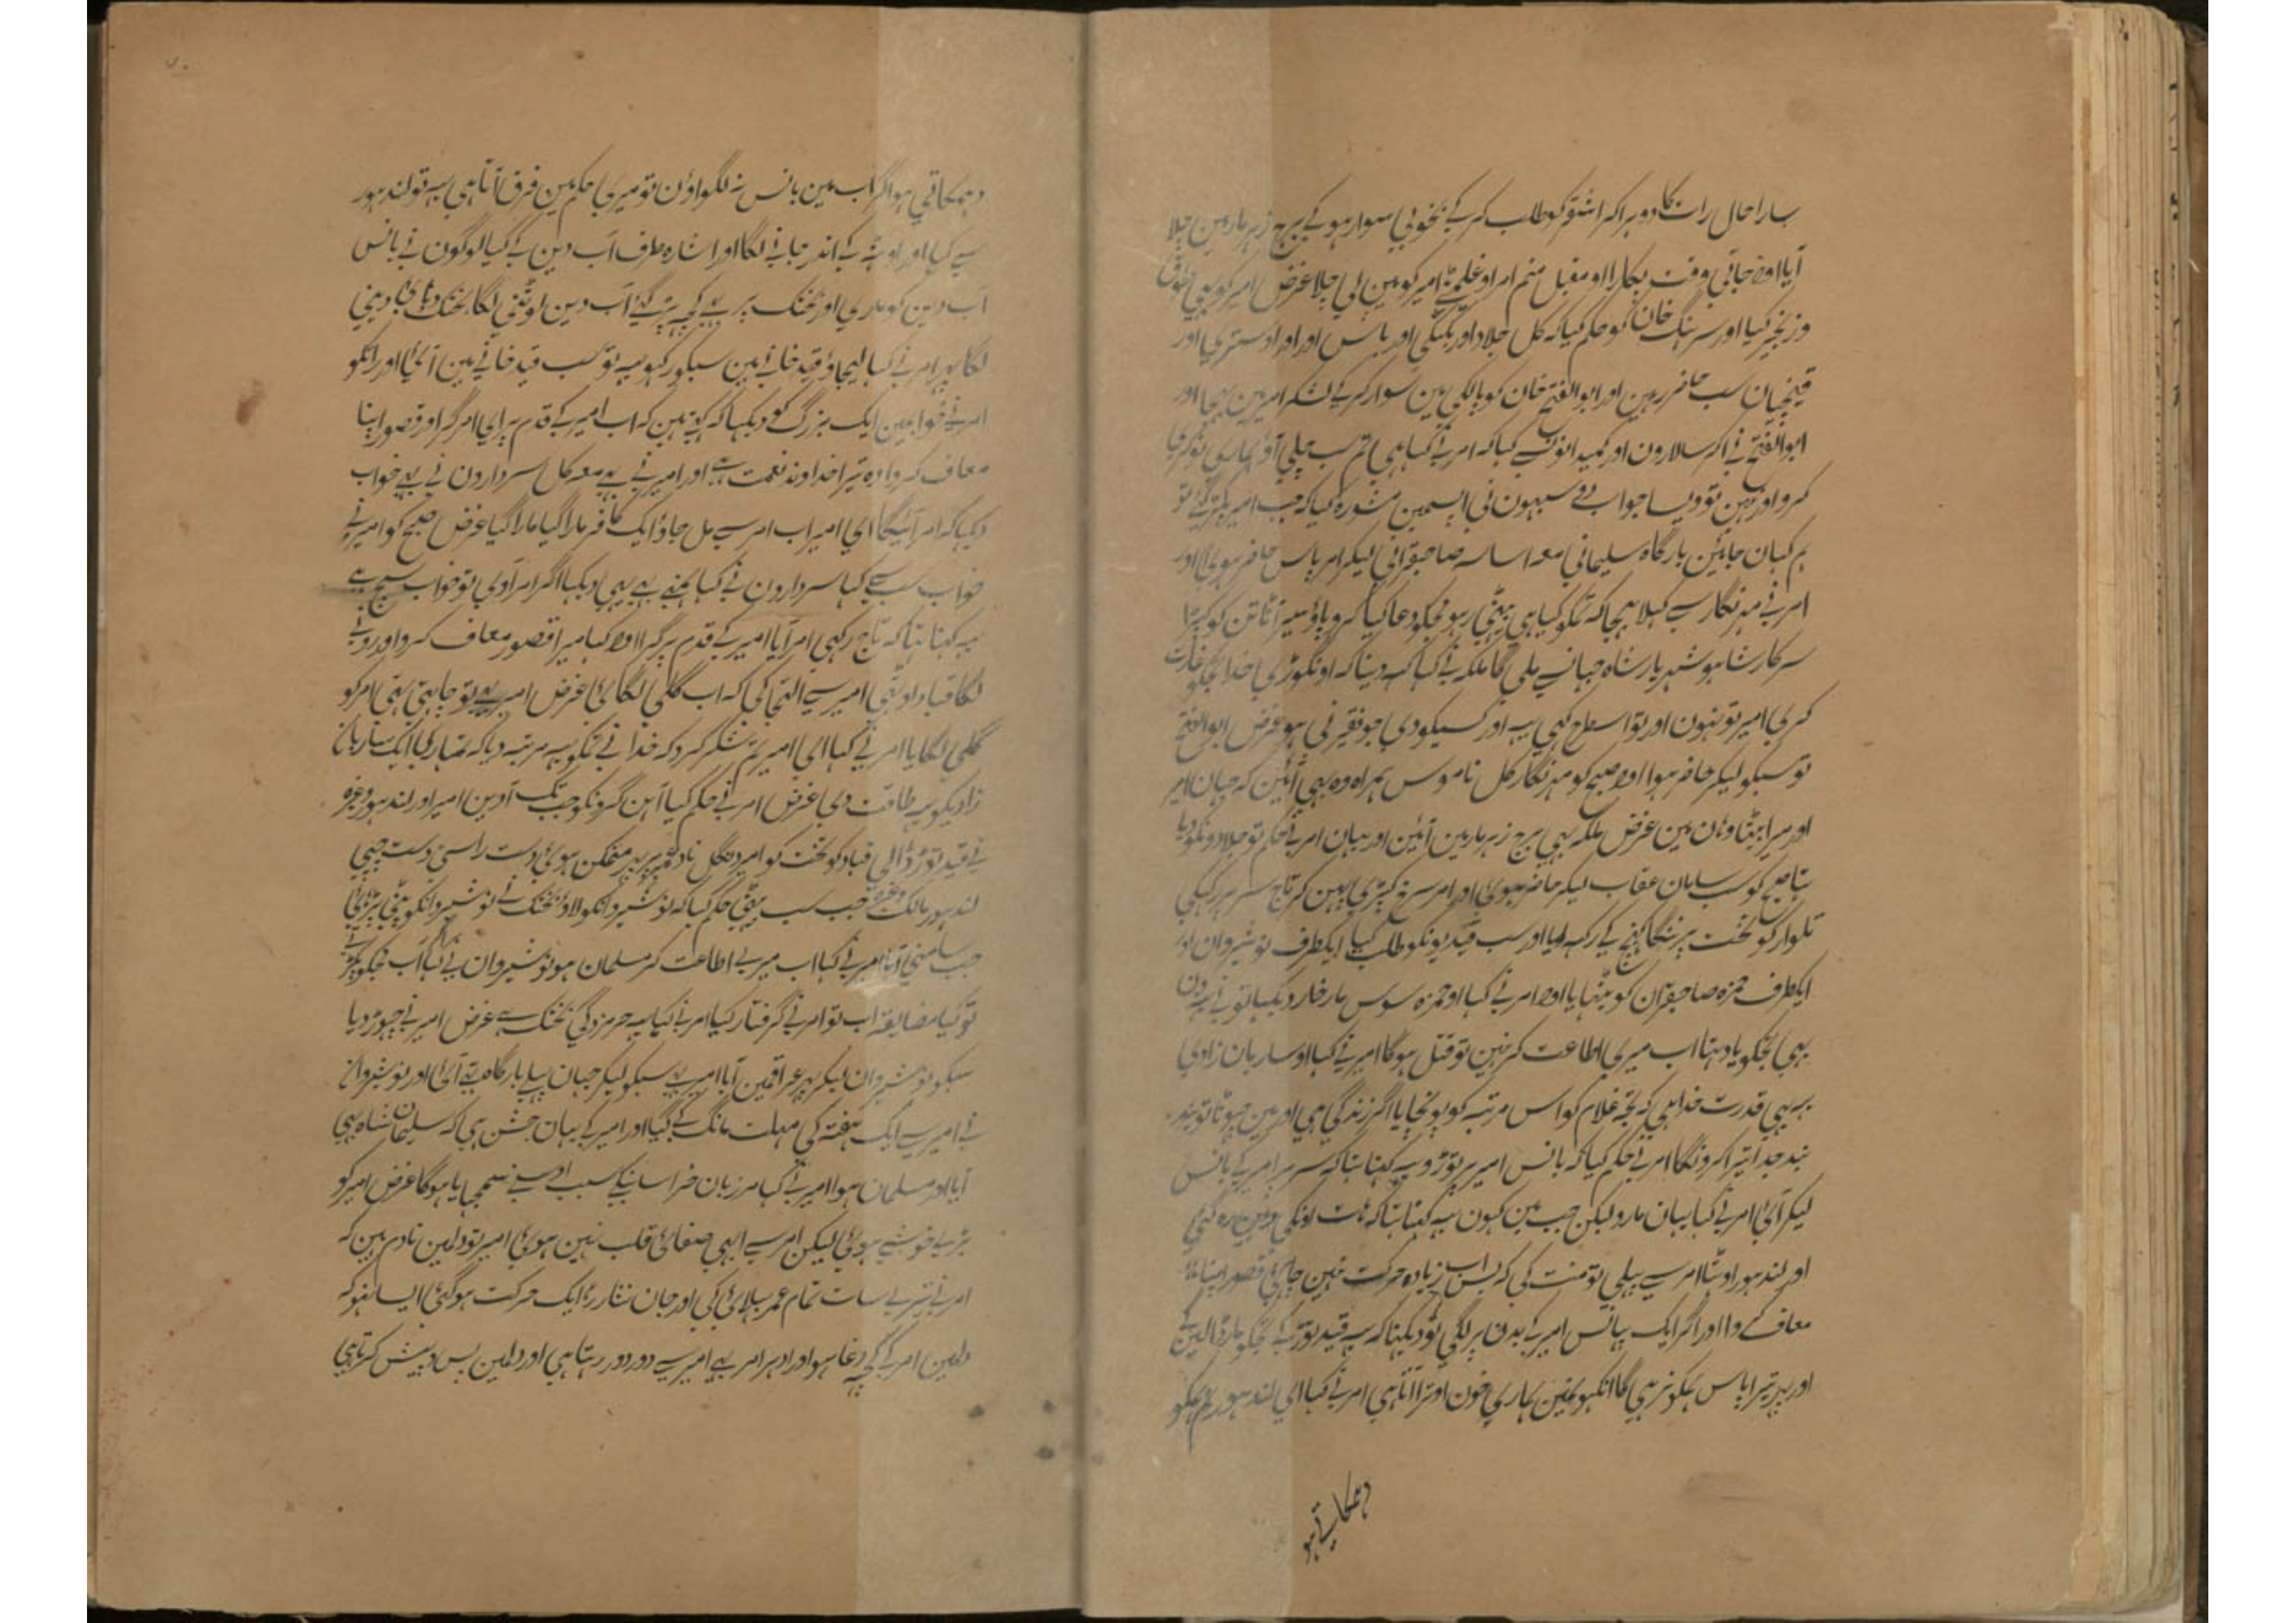 سارا حال رات کا دوہرا کر اشقر کو طلب کر کے بخوبی سوار ہو کے برج زہر مار مین چلا
آیا اور جاتی وقت پکارا او مقبل منم امر او غلمٹے امیر کو مین لی چلا غرض امیر کو بھی طوق
و زنجیر کیا اور سرہنگ خان کو حکم کیا کہ کل جلاد اور بانس اور اوستری اور
قینچیان سب حاضر رہین اور ابو الفتح خان کو پالکی مین سوار کر کے لشکر امیر مین بھیجا اور
ابو الفتح نی آکر سالارون اور کہا کہ امر نے کہا ہی تم سب چلی آؤ ہماری نوکری
کرو اور نہین تو ویسا جواب دو سبہون نی اپسمین مشورہ کیا کہ جب امیر پکڑے گئے تو
ہم کہان جائین بارگاہ سلیمانی معہ اساسہ صاحبقرانی لیکر امر پاس حاضر ہوی اور
امر نے مہر نگار سے کہلا بھیجا کہ تمکو کیا ہی بیٹھی رہو مجکو دعا کیا کرو
سرکار شاہ ہو شہریار شاہ جہان سے ملی گا ملکہ نے کہا کہہ دینا کہ او نگوڑی خدا تجکو غارت
کری امیر تو نہون اور تو اسطرح کہی یہ اور کسیکو دی جو فقیر نی ہو غرض ابو الفتح
تو سبکو لیکر حاضر ہوا اور صبح کو مہر نگار کل ناموس ہمراہ وہ بھی آئین کہ جہان امیر
اور میرا بیٹا وہان مین غرض ملکہ بھی برج زہر مار مین آئین اور یہان امر نے حکم تو جلادونکو دیا
تھا صبح کو سب سامان عقاب لیکر حاضر ہوی اور امر سرخ کپڑی پہن کر تاج سر پر رکھکی
تلوار کو تخت پر ننگا کھینچ کے رکھ لیا اور سب قیدیونکو طلب کیا ایکطرف نوشیروان اور
ایکطرف حمزہ صاحبقران کو بیٹھایا اور امر نے کہا او حمزہ سوس مار خار دیکھا تو نے یہ دن
بھی تجکو یاد تھا اب میری اطاعت کر نہین تو قتل ہوگا امیر نے کہا او ساربان زادی
یہ بھی قدرت خدا ہی کہ تجھ غلام کو اس مرتبہ کو پونچایا اگر زندگی ہی اور مین چھوٹا تو بند
بند جدا تیرا کرونگا امر نے حکم کیا کہ بانس امیر پر توڑو یہ کہنا تھا کہ سر پر امیر کے بانس
لیکر آئ امر نے کہا یہان مارو لیکن جب مین کہون یہ کہنا تھا کہ ہات اونکی وہین رہ گئی
اور لندہور اوٹھا امر سے پہلی تو منت کی کہ بس اب زیادہ حرکت نہین چاہی قصور اپنا
معاف کے وا اور اگر ایک بانس امیر کے بدن پر لگی تو دیکھنا کہ یہ قید توڑ کے تجکو مار ڈالین گے
اور پہر تیرا پاس ہمکو نرہی گا انکھونمین ہماری خون اوترا آتا ہی امر نے کہا ای لندہور تم ہمکو
دھمکاتے ہو
دھمکاتی ہو اگر اب مین بانس نہ لگواؤن تو میری حکم مین فرق آتا ہی یہ تو لندہور
سے کہا اور اوٹھ کے اندر جانے لگا اور اشارہ طرف آب دین کے کیا لوگون نے بانس
آب دین کو ماری اور بختک پر بھی کچہ پڑ گئے آب دین لوٹنی لگا بختک دہائی دینی
لگا پہر امر نے کہا لیجاؤ قید خانے مین سبکو رکھو یہ تو سب قید خانے مین آئی اور رات کو
امر نے خواب مین ایک بزرگ کو دیکھا کہ کہتے ہین کہ اب امیر کے قدم پر ای امر گر اور قصور اپنا
معاف کروا وہ تیرا خداوند نعمت ہے اور امیر نے بھی معہ کل سردارون نے یہ خواب
دیکھا کہ امر آئیگا ای امیر اب امر سے مل جاؤ ایک کافر مارا گیا مارا گیا غرض صبح کو امیر نے
خواب سب سے کہا سردارون نے کہا ہمنے بھی یہی دیکھا اگر امر آوی تو خواب سچ ہے
یہ کہنا تھا کہ تاج رکھی امر آیا امیر کے قدم پر گرا اور کہا میرا قصور معاف کرو اور رونے
لگا قباد اوٹھی امیر سے التجا کی کہ اب گلی لگائ غرض امیر بھی تو چاہتی تھی امر کو
گلی لگایا امر نے کہا ای امیر تم شکر کرو کہ خدا نے تمکو یہ مرتبہ دیا کہ تمہاری ایک ساربان
زادیکو یہ طاقت دی غرض امر نے حکم کیا آہن گرونکو جب تک آوین امیر اور لندہور وغیرہ
نے قید توڑ ڈالی قباد کو تخت کو امیر دنگل نادعلم پر متمکن ہوئ دست راستی دست چپی
لندہور مالک وغیرہ جب سب بیٹھی حکم کیا کہ نوشیروانکو لاؤ بختک نے نوشیروانکو پٹی پڑہائ
جب سامنی آیا امیر نے کہا اب میری اطاعت کر مسلمان ہو نوشیروان نے کہا آپ مجکو پکڑتے
تو کیا مضایقہ اب تو امر نے گرفتار کیا امر نے کہا یہ حرمزدگی بختک ہے غرض امیر نے چھوڑ دیا
سبکو نوشیروان لیکر پھر عراقمین آیا امیر بھی سبکو لیکر جہان پہلے بارگاہ تھی آئ اور نوشیروان
نے امیر سے ایک ہفتہ کی مہلت مانگ کے گیا اور امیر کے یہان جشن ہی کہ سلیمان شاہ بھی
آیا اور مسلمان ہوا امیر نے کہا مرزبان خراسانیکے سبب اوسنے سمجھایا ہوگا غرض امیر کو
بڑی خوشی ہوئ لیکن امر سے ابھی صفائ قلب نہین ہوئ امیر تو دلمین نادم ہین کہ
امر نے تیرے سات تمام عمر بھلائ کی اور جان نثار رہا ایک حرکت ہوگئی ایسا نہو کہ
دلمین امر کے کچہ دغا ہو اور ادہر امر بھی امیر سے دور دور رہتا ہی اور دلمین پس و پیش کرتا ہی